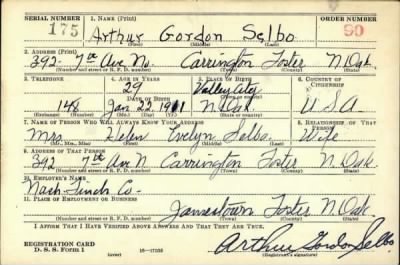 SERIAL NUMBER 1. NAME (Print) ORDER NUMBER
175 Arthur Gordon Selbo 90
(First) (Middle) (Last)
2. ADDRESS (Print)
392- 7th Ave. No. Carrington Foster N. Dak.
(Number and street or R. F. D. number) (Town) (County) (State)
3. TELEPHONE 4. AGE IN YEARS 5. PLACE OF BIRTH 6. COUNTRY OF CITIZENSHIP
29 Valley City
(Town or county)
148 Jan 22, 1911 N. Dak. U S A
(Exchange) (Number) (Mo.) (Day) (Yr.) (State or country)
7. NAME OF PERSON WHO WILL ALWAYS KNOW YOUR ADDRESS 8. RELATIONSHIP OF THAT PERSON
Mrs. Helen Evelyn Selbo Wife
(Mr., Mrs., Miss) (First) (Middle) (Last)
9. ADDRESS OF THAT PERSON
392 7th Ave N Carrington Foster N. Dak.
(Number and street or R. F. D. number) (Town) (County) (State)
10. EMPLOYER'S NAME
Nash-Finch Co.
11. PLACE OF EMPLOYMENT OR BUSINESS
Jamestown Foster N. Dak.
(Number and street or R. F. D. number) (Town) (County) (State)
I AFFIRM THAT I HAVE VERIFIED ABOVE ANSWERS AND THAT THEY ARE TRUE.
REGISTRATION CARD
D. S. S. Form 1 (over) 16-17105 Arthur Gordon Selbo
(Registrant's signature)